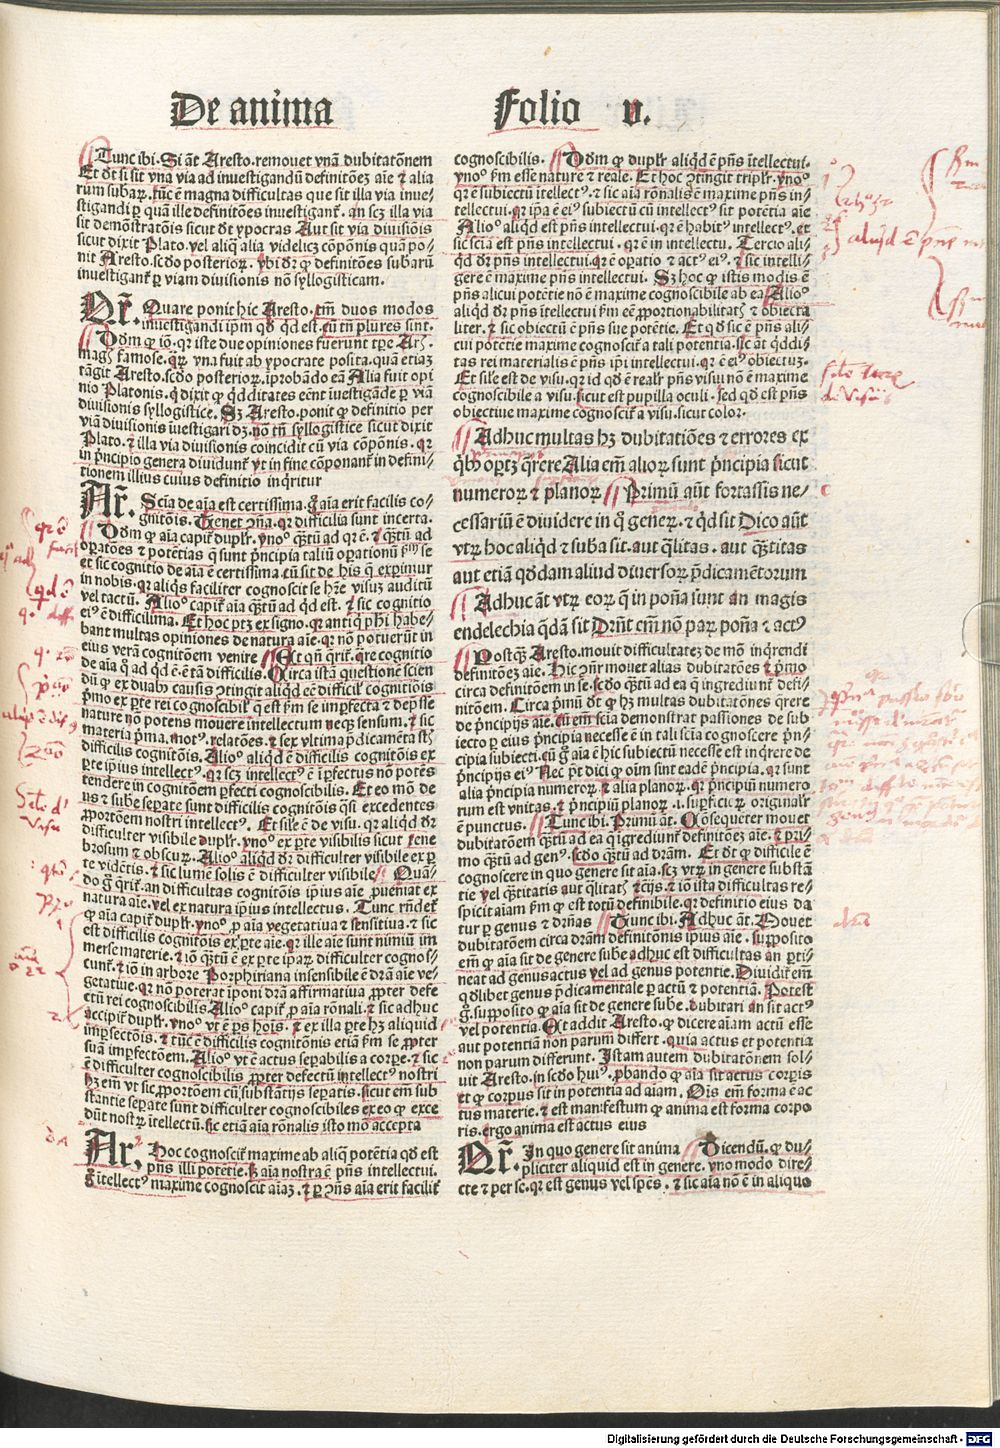 De anima Folio v.
Tunc ibi. Si āt Aresto. remouet vnā dubitatōnem
Et dt̄ si sit vna via ad inuestigandū definitōeꝫ aīe ⁊ alia
rum subarꝝ. tūc ē magna difficultas que sit illa via inue/
stigandi ꝑ quā ille definitōes inuestiganť. an scꝫ illa via
sit demōstratōis sicut dt̄ ypocras Aut sit via diuisiōis
sicut dixit Plato. vel aliq̄ alia videlicꝫ cōpōnis quā po/
nit Aresto. scdo posteriorꝝ. vbi dr̄ ꝙ definitōes subarū
inuestiganť ꝑ viam diuisionis nō syllogisticam.
Qr̄. Quare ponit hic Aresto. tm̄ duos modos
inuestigandi ip̄m qd̓ qd̓ est. cū tn̄ plures sint.
Dd̄m ꝙ iō. qr iste due opiniones fuerunt tp̄e Ar̄.
magꝭ famose. qꝝ vna fuit ab ypocrate posita. quā etiaꝫ
tāgit Aresto. scdo posteriorꝝ. iprobādo eā Alia fuit opi
nio Platonis. q̄ dixit ꝙ qd̓ditates eēnt iuestigāde ꝑ via
diuisionis syllogistice. Sꝫ Aresto. ponit ꝙ definitio per
viā diuisionis iuestigari dꝫ. nō tn̄ syllogistice sicut dixit
Plato. ⁊ illa via diuisionis coincidit cū via cōpōnis. qr
in p̄ncipio genera diuidunť vt in fine cōponanť in defini/
tionem illius cuius definitio inq̄ritur
Ar̄. Scīa de aīa est certissima. g̊ aīa erit facilis co/
gnitōis. Tenet ꝯna. qr difficilia sunt incerta.
Dd̄m ꝙ aīa capiť duplr̄. vno⁹ q̄ꝫtū ad qr ē. ⁊ q̄ꝫtū ad
opatōes ⁊ potētias q̄ sunt p̄ncipia taliū opationū fm se
et sic cognitio de aīa ē certissima. cū sit de his q̄ expimur
in nobis. qr aliq̄s faciliter cognoscit se hr̄e visuꝫ auditū
vel tactū. Alio⁹ capiť aīa q̄ꝫtū ad qd̓ est. ⁊ sic cognitio
ei⁹ ē difficilima. Et hoc ptꝫ ex signo. qr antiq̄ phi habe/
bant multas opiniones de natura aīe. qr nō potuerūt in
eius verā cognitōem venire Est qn̄ qrit̄. qre cognitio
de aīa q̄ ad qd̓ ē. ē tā difficilis. Circa istā questionē scien
dū ꝙ ex duabꝰ causis ꝯtingit aliqd̓ eē difficil̓ cognitiōis
p̄mo ex pte rei cognoscibil̓ q̄ est fm se impfecta ⁊ depsse
nature nō potens mouere intellectum neqꝫ sensum. ⁊ sic
materia p̄ma. mot⁹. relatōes. ⁊ sex vltima p̄dicamēta st̄
difficilis cognitōis. Alio⁹ aliqd̓ ē difficilis cognitōis ex
pte ipius intellect⁹. qr scꝫ intellect⁹ ē īpfectus nō potēs
tendere in cognitōem pfecti cognoscibilis. Et eo mō de
us ⁊ sube sepate sunt difficilis cognitōis q̄si excedentes
ꝓportōem nostri intellect⁹. Et sile ē de visu. qr aliqd̓ dr̄
difficulter visibile duplr̄. vno⁹ ex pte visibilis sicut tene
brosum ⁊ obscurꝝ. Alio⁹ aliqd̓ dr̄ difficulter visibile ex p
te vidētis. ⁊ sic lumē solis ē difficulter visibile Quā/
do g̊ qrit̄. an difficultas cognitōis ipius aīe ꝓueniat ex
natura aīe. vel ex natura ipius intellectus. Tunc rn̄deť
ꝙ aīa capiť duplr̄. vno⁹. ꝓ aīa vegetatiua ⁊ sensitiua. ⁊ sic
est difficilis cognitōis ex pte aīe. qr ille aīe sunt nimiū im
merse materie. ⁊ iō q̄ꝫtū ē ex pte ipaꝝ difficulter cognos/
cunť. ⁊ iō in arbore Porphiriana insensibile ē dr̄a aīe ve/
getatiue. qr nō poterat īponi dr̄a affirmatiua ꝓpter defe
ctū rei cognoscibilis Alio⁹ capiť ꝓ aīa rōnali. ⁊ sic adhuc
accipiť duplr̄. vno⁹ vt ē ps hoīs. ⁊ ex illa pte hꝫ aliquid
impfectōis. ⁊ tūc ē difficilis cognitōnis etiā fm se ꝓpter
suā impfectōem. Alio⁹ vt ē actus sepabilis a corpe. ⁊ sic
ē difficulter cognoscibilis ꝓpter defectū intellect⁹ nostri
hꝫ em̄ vt sic ꝓportōem cū substantijs sepatis. sicut em̄ sub
stantie sepate sunt difficulter cognoscibiles ex eo ꝙ exce
dūt nostꝝ ītellectū. sic etiā aīa rōnalis isto mō accepta
Ar. Hoc cognosciť maxime ab aliq̄ potētia qd̓ est
pn̄s illi potētie. sꝫ aīa nostra ē pn̄s intellectui.
g̊ ītellect⁹ maxime cognoscit aīaꝫ. ⁊ p ꝯn̄s aīa erit facilit̓
cognoscibilis. Dd̄m ꝙ duplr̄ aliqd̓ ē pn̄s ītellectui.
vno⁹ fm esse nature ⁊ reale. Et hoc ꝯtingit triplr̄. vno⁹
qr ē subiectū ītellect⁹. ⁊ sic aīa rōnalis ē maxime pn̄s in/
tellectui. qr ipa ē ei⁹ subiectū cū intellect⁹ sit potētia aīe
Alio⁹ aliqd̓ est pn̄s intellectui. qr ē habit⁹ intellect⁹. et
sic scīa est pn̄s intellectui. qr ē in intellectu. Tercio ali/
qd̓ dr̄ pn̄s intellectui. qr ē opatio ⁊ act⁹ ei⁹. ⁊ sic intelli/
gere ē maxime pn̄s intellectui. Sꝫ hoc ꝙ istis modis ē
pn̄s alicui potētie nō ē maxime cognoscibile ab ea Alio⁹
aliqd̓ dr̄ pn̄s ītellectui fm eē ꝓportionabilitatꝭ ⁊ obiecta
liter. ⁊ sic obiectū ē pn̄s sue potētie. Et qd̓ sic ē pn̄s ali/
cui potētie maxime cognosciť a tali potentia. sic āt q̄ddi
tas rei materialis ē pn̄s ipi intellectui. qr ē ei⁹ obiectuꝫ.
Et sile est de visu. qr id qd̓ ē realr̄ pn̄s visui nō ē maxime
cognoscibile a visu. sicut est pupilla oculi. sed qd̓ est pn̄s
obiectiue maxime cognosciť a visu. sicut color.
Adhuc multas hꝫ dubitatiōes ⁊ errores ex
q̄bꝰ oportꝫ q̄rere Alia em̄ aliorꝝ sunt p̄ncipia sicut
numerorꝝ ⁊ planorꝝ Primū aūt fortassis ne/
cessariū ē diuidere in q̊ generꝝ. ⁊ qd̓ sit Dico aūt
vtrꝝ hoc aliqd̓ ⁊ suba sit. aut q̄litas. aut q̄ꝫtitas
aut etiā qd̓dam aliud diuersorꝝ p̄dicamētorum
Adhuc āt vtrꝝ eorꝝ q̄ in potn̄a sunt an magis
endelechia q̄dā sit Drn̄t em̄ nō paꝝ potn̄a ⁊ act⁹
Postq̄ꝫ Aresto. mouit difficultateꝫ de mō inq̄rendi
definitōeꝫ aīe. Hic ꝯn̄r mouet alias dubitatōes ⁊ p̄mo
circa definitōem in se. scdo q̄ꝫtū ad ea q̄ ingrediunť defi/
nitōem. Circa p̄mū dt̄ ꝙ hꝫ multas dubitatōnes q̄rere
de p̄ncipijs aīe. cū em̄ scīa demonstrat passiōnes de sub
iecto p eius p̄ncipia necesse ē in tali scīa cognoscere p̄n/
cipia subiecti. cū g̊ aīa ē hic subiectū necesse est inq̄rere de
p̄ncipijs ei⁹ Nec pn̄t dici ꝙ oīm sint eadē p̄ncipia. qr sunt
alia p̄ncipia numerorꝝ ⁊ alia planorꝝ. qr p̄ncipiū numero
rum est vnitas. ⁊ p̄ncipiū planorꝝ .i. supficieꝝ originalr̄
ē punctus. Tunc ibi. Primū āt. Cōsequēter mouet
dubitatōem q̄ꝫtū ad ea q̄ īgrediunť definitōeꝫ aīe. ⁊ pri/
mo q̄ꝫtū ad gen⁹. scdo q̄ꝫtū ad dr̄am. Et dt̄ ꝙ difficile ē
cognoscere in quo genere sit aīa. scꝫ vtrꝝ in genere substā
tie vel q̄ꝫtitatis aut q̄litatꝭ ⁊cēijs. ⁊ iō ista difficultas re/
spicit aīam fm ꝙ est totū definibile. qr definitio eius da
tur p genus ⁊ dr̄nās Tunc ibi. Adhuc āt. Mouet
dubitatōem circa dr̄am definitōnis ipius aīe. supposito
em̄ ꝙ aīa sit de genere sube adhuc est difficultas an pti/
neat ad genus actus vel ad genus potentie. Diuidiť em̄
qd̓libet genus p̄dicamentale p actū ⁊ potentiā. Potest
g̊. supposito ꝙ aīa sit de genere sube. dubitari an sit act⁹
vel potentia. Et addit Aresto. ꝙ dicere aīam actū esse
aut potentiā non parum differt. quia actus et potentia
non parum differunt. Istam autem dubitatōnem sol/
uit Aresto. in scdo hui⁹. pbando ꝙ aīa sit actus corpis
et ꝙ corpus sit in potentia ad aīam. Oīs em̄ forma ē ac
tus materie. ⁊ est manifestum ꝙ anima est forma corpo
ris. ergo anima est actus eius
Qr̄. In quo genere sit anima Dicendū. ꝙ du/
pliciter aliquid est in genere. vno modo dire/
cte ⁊ per se. qr est genus vel spēs. ⁊ sic aīa nō ē in aliquo
Digitalisierung gefördert durch die Deutsche Forschungsgemeinschaft - DFG